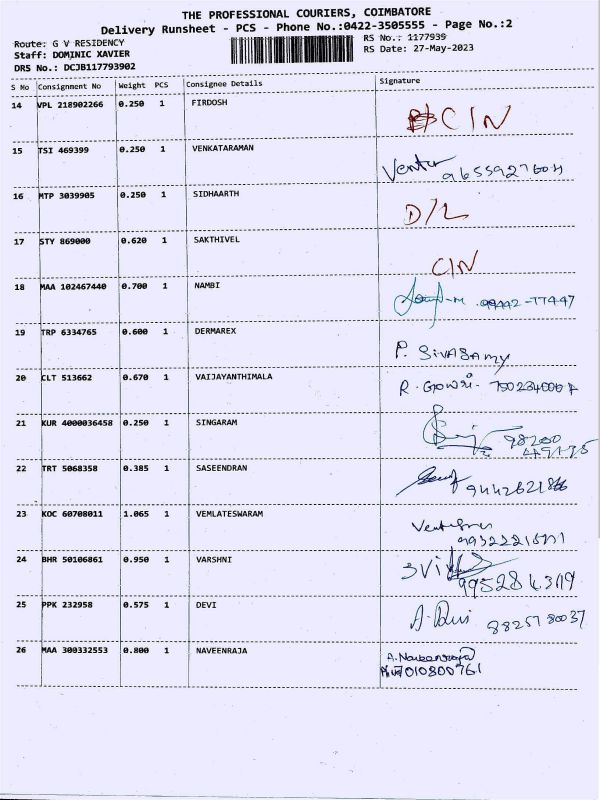 THE PROFESSIONAL COURIERS, COIMBATORE
Delivery Runsheet - PCS - Phone No.:0422-3505555 - Page No.:2
Route: G V RESIDENCY
RS No.: 1177939
Staff: DOMINIC XAVIER
RS Date: 27-May-2023
DRS No.: DCJB117793902
S No Consignment No Weight PCS Consignee Details Signature
14 VPL 218902266 0.250 1 FIRDOSH CIN
15 TSI 469399 0.250 1 VENKATARAMAN
16 MTP 3039905 0.250 1 SIDHAARTH D/L
17 STY 869000 0.620 1 SAKTHIVEL CIN
18 MAA 102467440 0.700 1 NAMBI 99442-77447
19 TRP 6334765 0.600 1 DERMAREX P. SIVASAMY
20 CLT 513662 0.670 1 VAIJAYANTHIMALA R. Gowri-
21 KUR 4000036458 0.250 1 SINGARAM 98200
22 TRT 5068358 0.385 1 SASEENDRAN 9442621866
23 KOC 60708011 1.065 1 VEMLATESWARAM
24 BHR 50106861 0.950 1 VARSHNI
25 PPK 232958 0.575 1 DEVI A. Devi 8825780037
26 MAA 300332553 0.800 1 NAVEENRAJA A. Naveenraja
7010800761